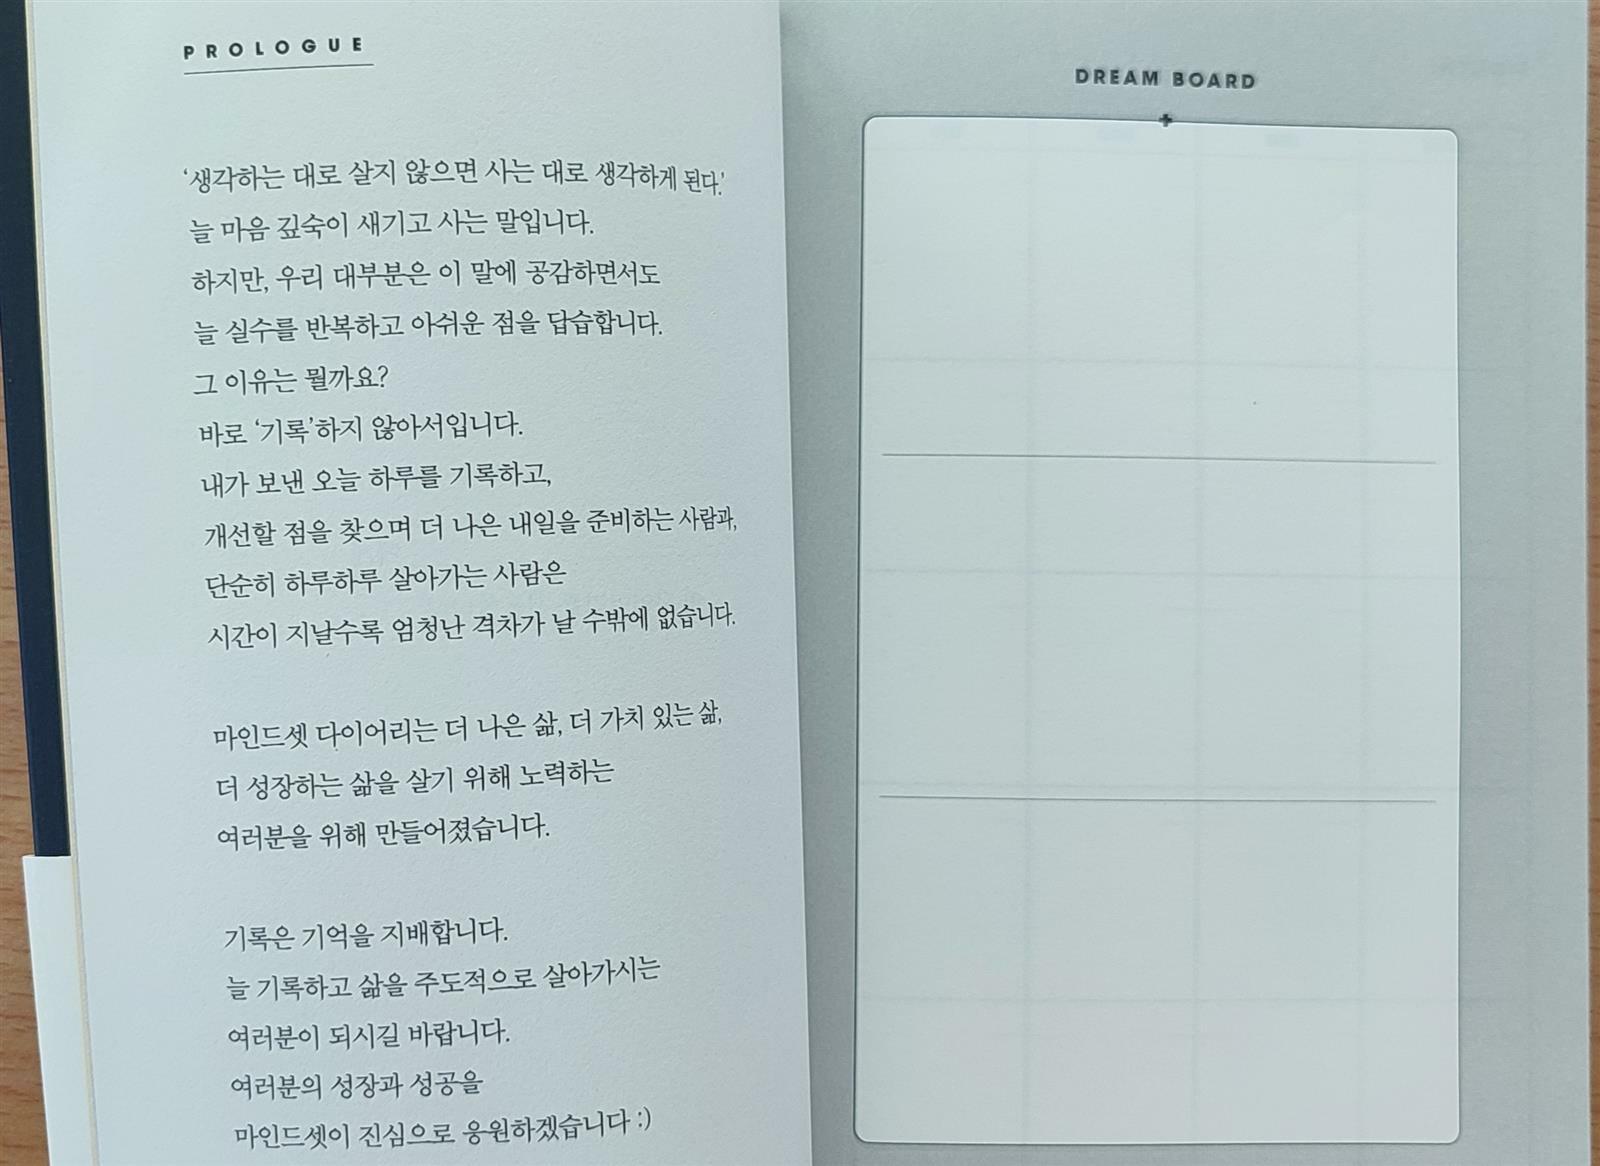 PROLOGUE
‘생각하는 대로 살지 않으면 사는 대로 생각하게 된다.’
늘 마음 깊숙이 새기고 사는 말입니다.
하지만, 우리 대부분은 이 말에 공감하면서도
늘 실수를 반복하고 아쉬운 점을 답습합니다.
그 이유는 뭘까요?
바로 ‘기록’하지 않아서입니다.
내가 보낸 오늘 하루를 기록하고,
개선할 점을 찾으며 더 나은 내일을 준비하는 사람과,
단순히 하루하루 살아가는 사람은
시간이 지날수록 엄청난 격차가 날 수밖에 없습니다.
마인드셋 다이어리는 더 나은 삶, 더 가치 있는 삶,
더 성장하는 삶을 살기 위해 노력하는
여러분을 위해 만들어졌습니다.
기록은 기억을 지배합니다.
늘 기록하고 삶을 주도적으로 살아가시는
여러분이 되시길 바랍니다.
여러분의 성장과 성공을
마인드셋이 진심으로 응원하겠습니다 :)
DREAM BOARD